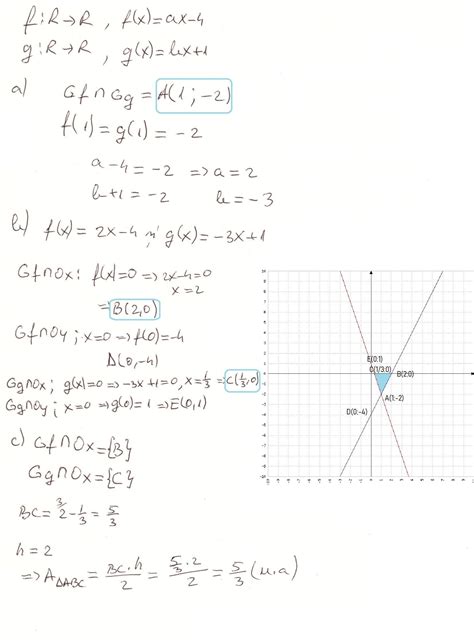 f:R→R, f(x)=ax-4
g:R→R, g(x)=bx+1
a) Gf∩Gg = A(1;-2)
f(1)=g(1)=-2
a-4=-2 ⇒ a=2
b+1=-2 b=-3
b) f(x)=2x-4 și g(x)=-3x+1
Gf∩Ox: f(x)=0 ⇒ 2x-4=0
x=2
⇒ B(2,0)
Gf∩Oy; x=0 ⇒ f(0)=-4
D(0,-4)
Gg∩Ox; g(x)=0 ⇒ -3x+1=0, x=1/3 ⇒ C(1/3,0)
Gg∩Oy; x=0 ⇒ g(0)=1 ⇒ E(0,1)
E(0;1)
C(1/3;0)
B(2;0)
A(1;-2)
D(0;-4)
c) Gf∩Ox={B}
Gg∩Ox={C}
BC= ³⁾2-1/3=5/3
h=2
⇒ A△ABC = BC·h/2 = 5/3·2/2 = 5/3 (u.a)